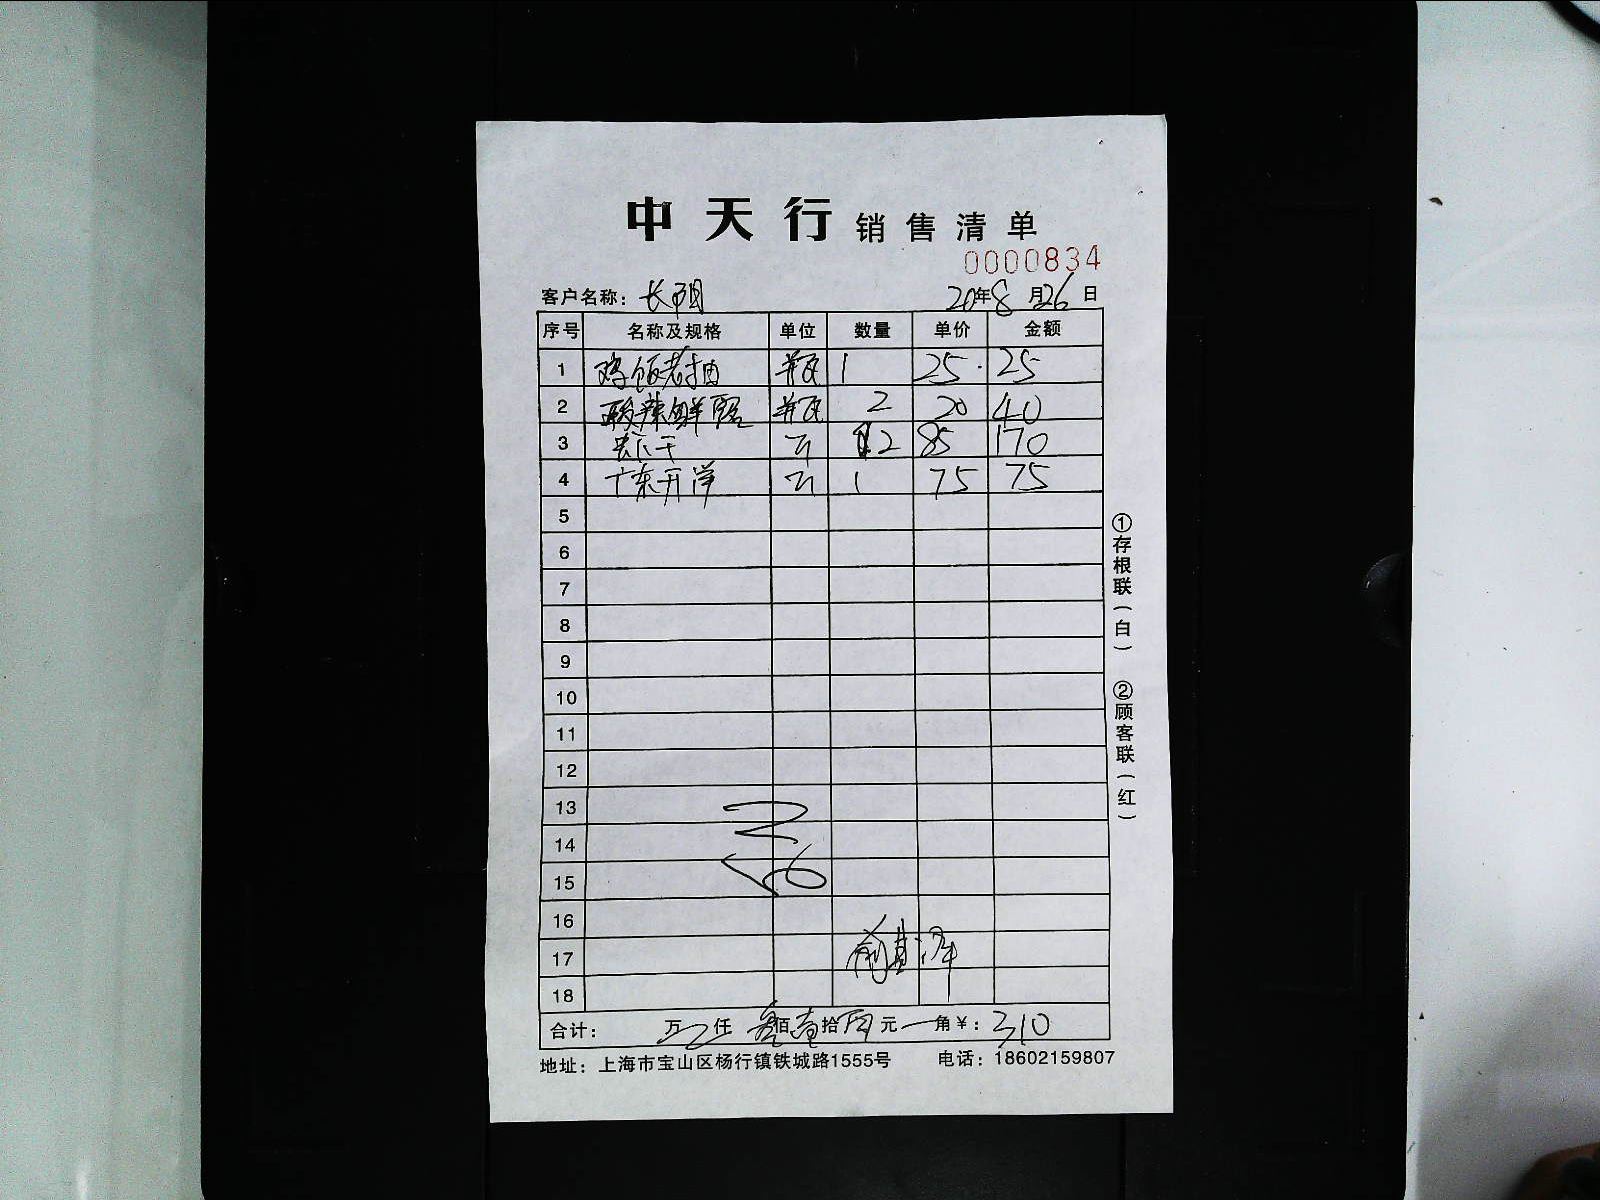 中天行 销售清单
0000834
客户名称： 长阳
20年8月26日
序号 名称及规格 单位 数量 单价 金额
1 鸡饭老抽 瓶 1 25 25
2 酸辣鲜露 瓶 2 20 40
3 斤 2 85 170
4 广东开洋 斤 1 75 75
5
6
7
8
9
10
11
12
13
14
15
16
17
18
合计： 万 仟 叁佰壹拾 元 角 ¥： 310
地址：上海市宝山区杨行镇铁城路1555号 电话：18602159807
①存根联（白） ②顾客联（红）